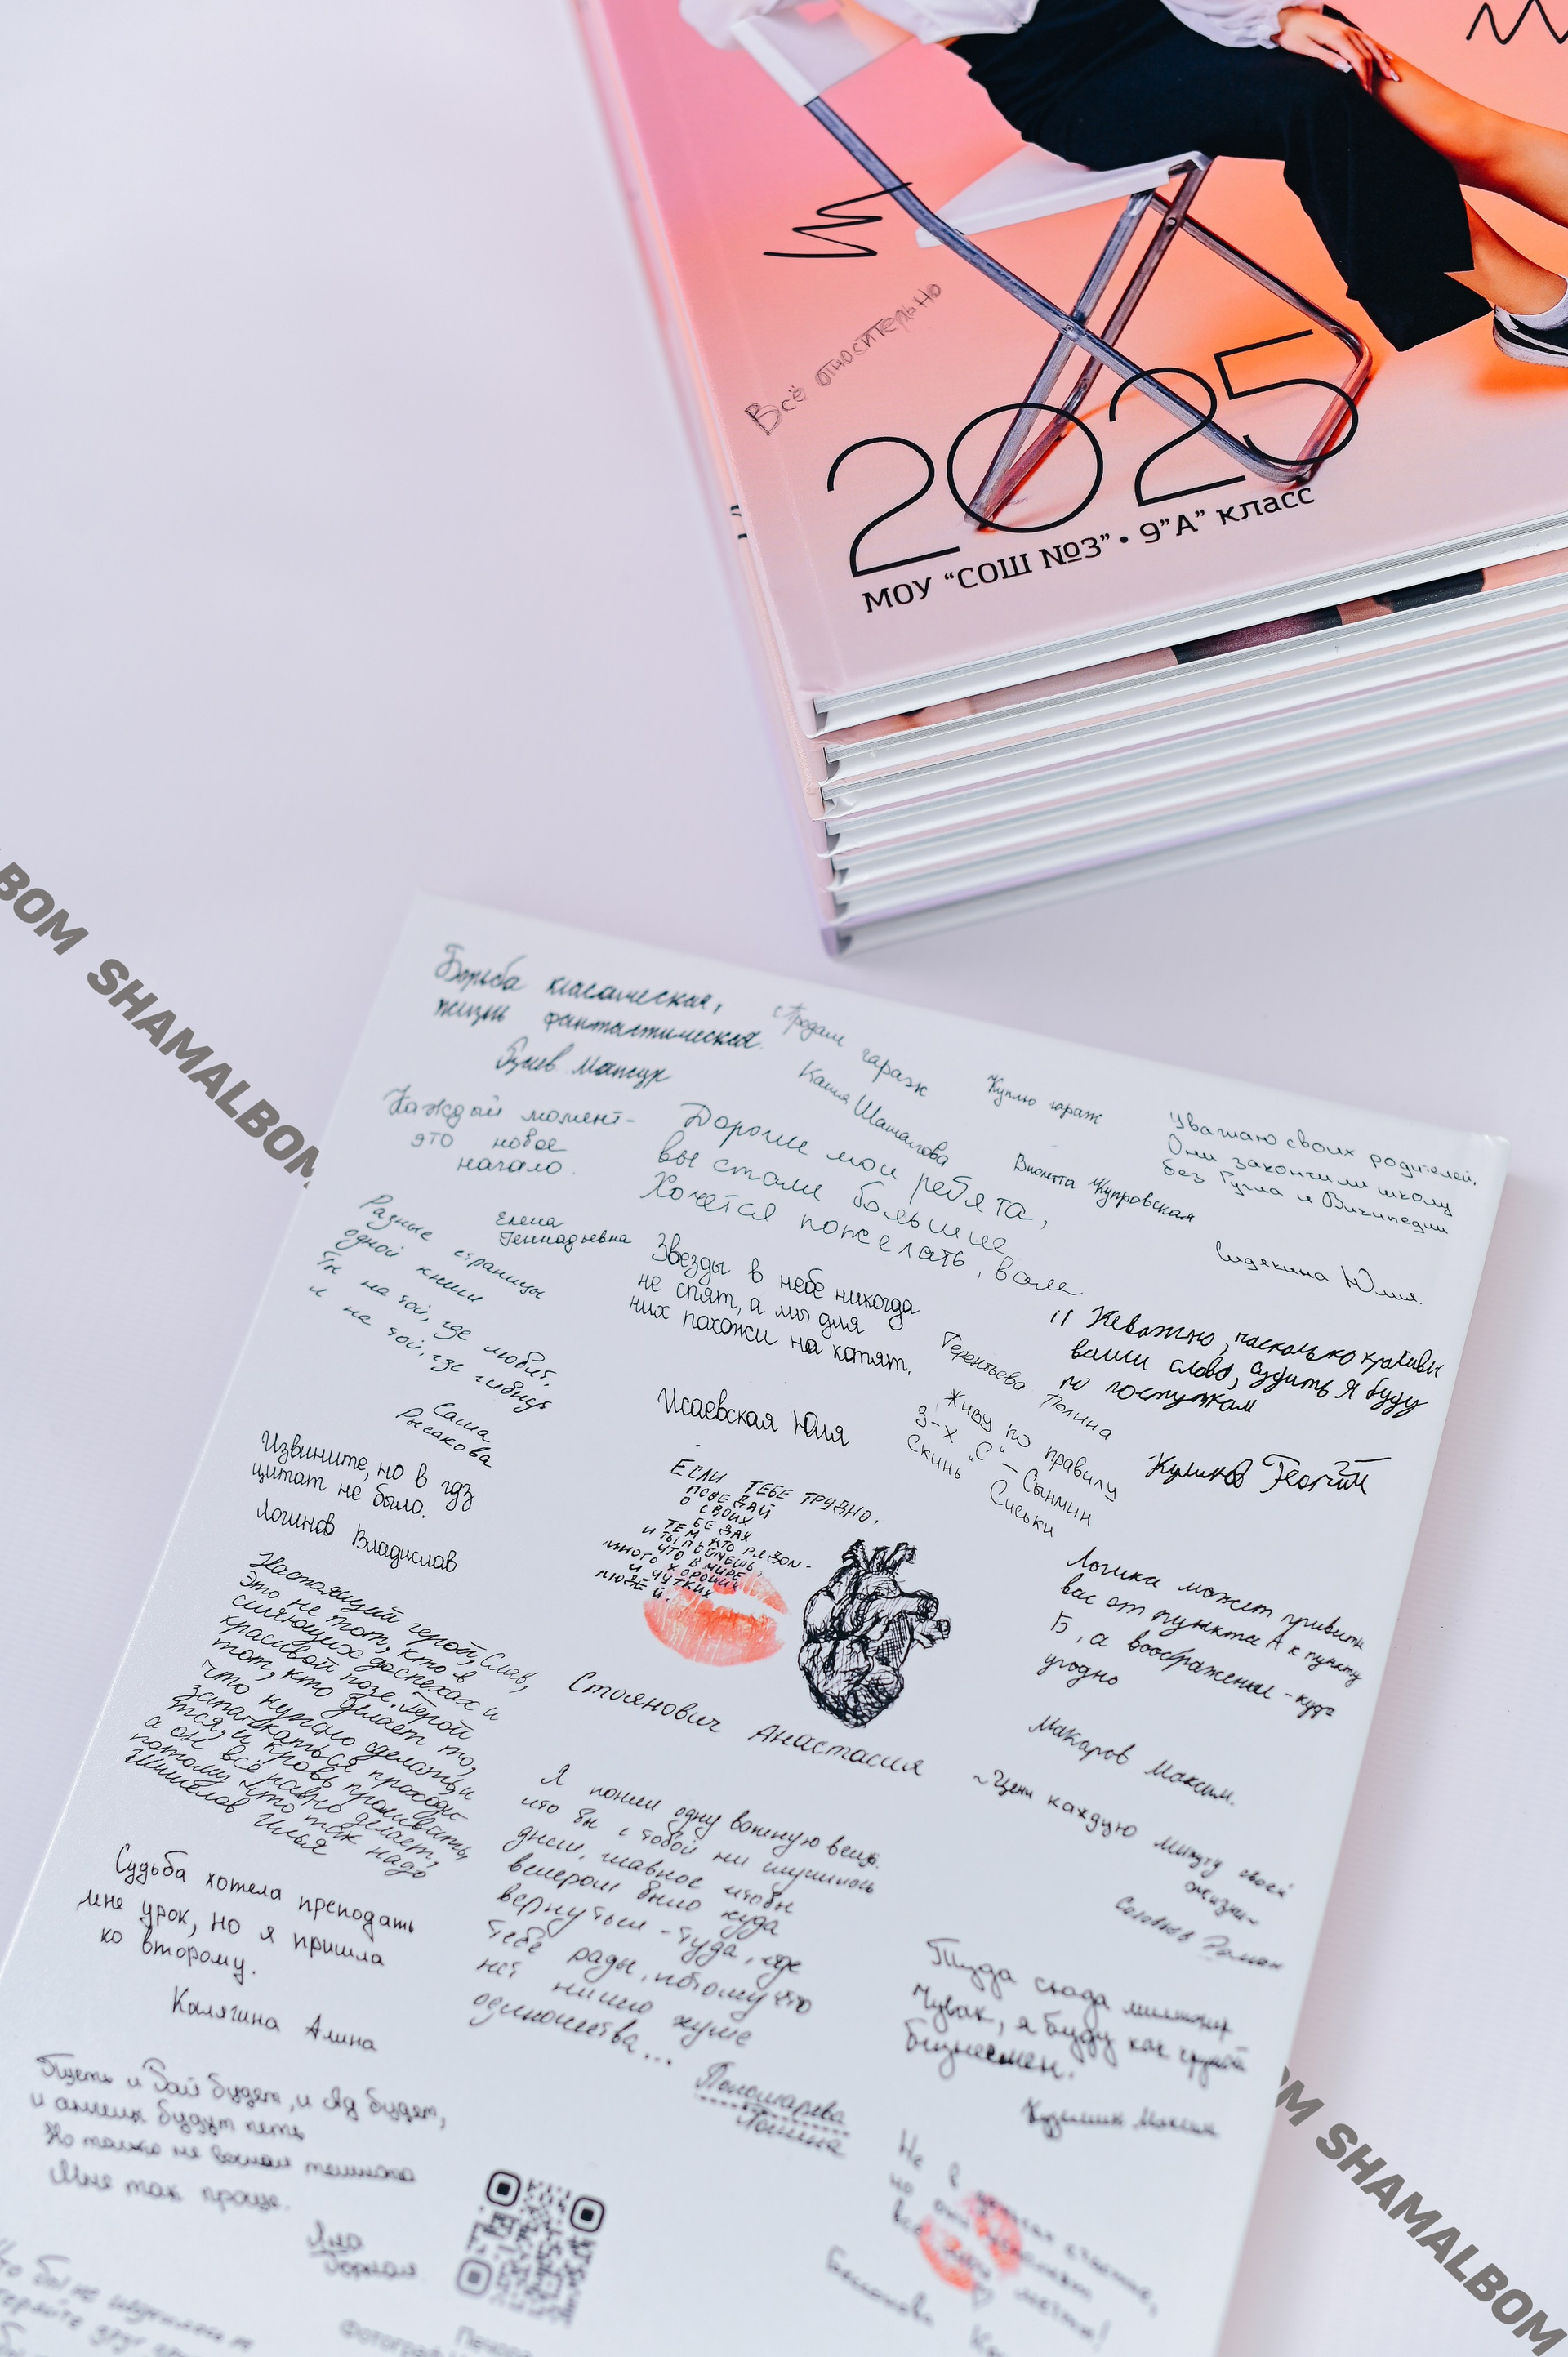 Всё относительно
2025
МОУ "СОШ №3" • 9"А" класс
BOM SHAMALBOM
Борьба классическая,
жизнь фантастическая.
Мансур
"Продам гараж
Катя Шаталова
"Куплю гараж
Виолетта Жупровская
Уважаю своих родителей.
Они закончили школу
без Гугла и Википедии
Сидякина Юлия.
Каждый момент-
это новое
начало.
Елена
Геннадьевна
Дорогие мои ребята,
вы стали большие.
Хочется пожелать, вам
Разные страницы
одной книги
Ты на той, где любят,
и на той, где гибнут
Саша
Рысакова
Звезды в небе никогда
не спят, а мы для
них похожи на котят.
Исаевская Юлия
Терентьева Полина
" Неважно, насколько красивы
ваши слова, судить я буду
по поступкам
Куликов Георгий
Живу по правилу
3-х "С" – Сынмин
Скинь Сиськи
Извините, но в гдз
цитат не было.
Логинов Владислав
Если тебе трудно,
поведай
о своих
бедах
тем, кто рядом -
и ты поймешь,
что в мире
много хороших
и чутких
людей.
Стоянович Анастасия
Логика может привести
вас от пункта А к пункту
Б, а воображение - куда
угодно
Макаров Максим.
Настоящий герой, Слав,
это не тот, кто в
сияющих доспехах и
красивой позе. Герой
тот, кто делает то,
что нужно сделать, и
запачкаться проходи-
тся, и кровь проливать,
а он всё равно делает,
потому что так надо
Шишелов Илья
~Цени каждую минуту своей
жизни~
Соловьев Роман
Я понял одну важную вещь.
что бы с тобой ни случилось
днём, главное чтобы
вечером было куда
вернуться - туда, где
тебе рады, потому что
нет ничего хуже
одиночества...
Пономарева
Полина
Судьба хотела преподать
мне урок, но я пришла
ко второму.
Калягина Алина
Туда сюда миллионер
Чувак, я буду как крутой
бизнесмен.
Максим
Пусть и Рай будет, и Ад будет,
и ангелик будут петь
Но только не вечная темнота
Мне так проще.
Яна
Горная
Не в
но они
все мечты!
SHAMALBOM